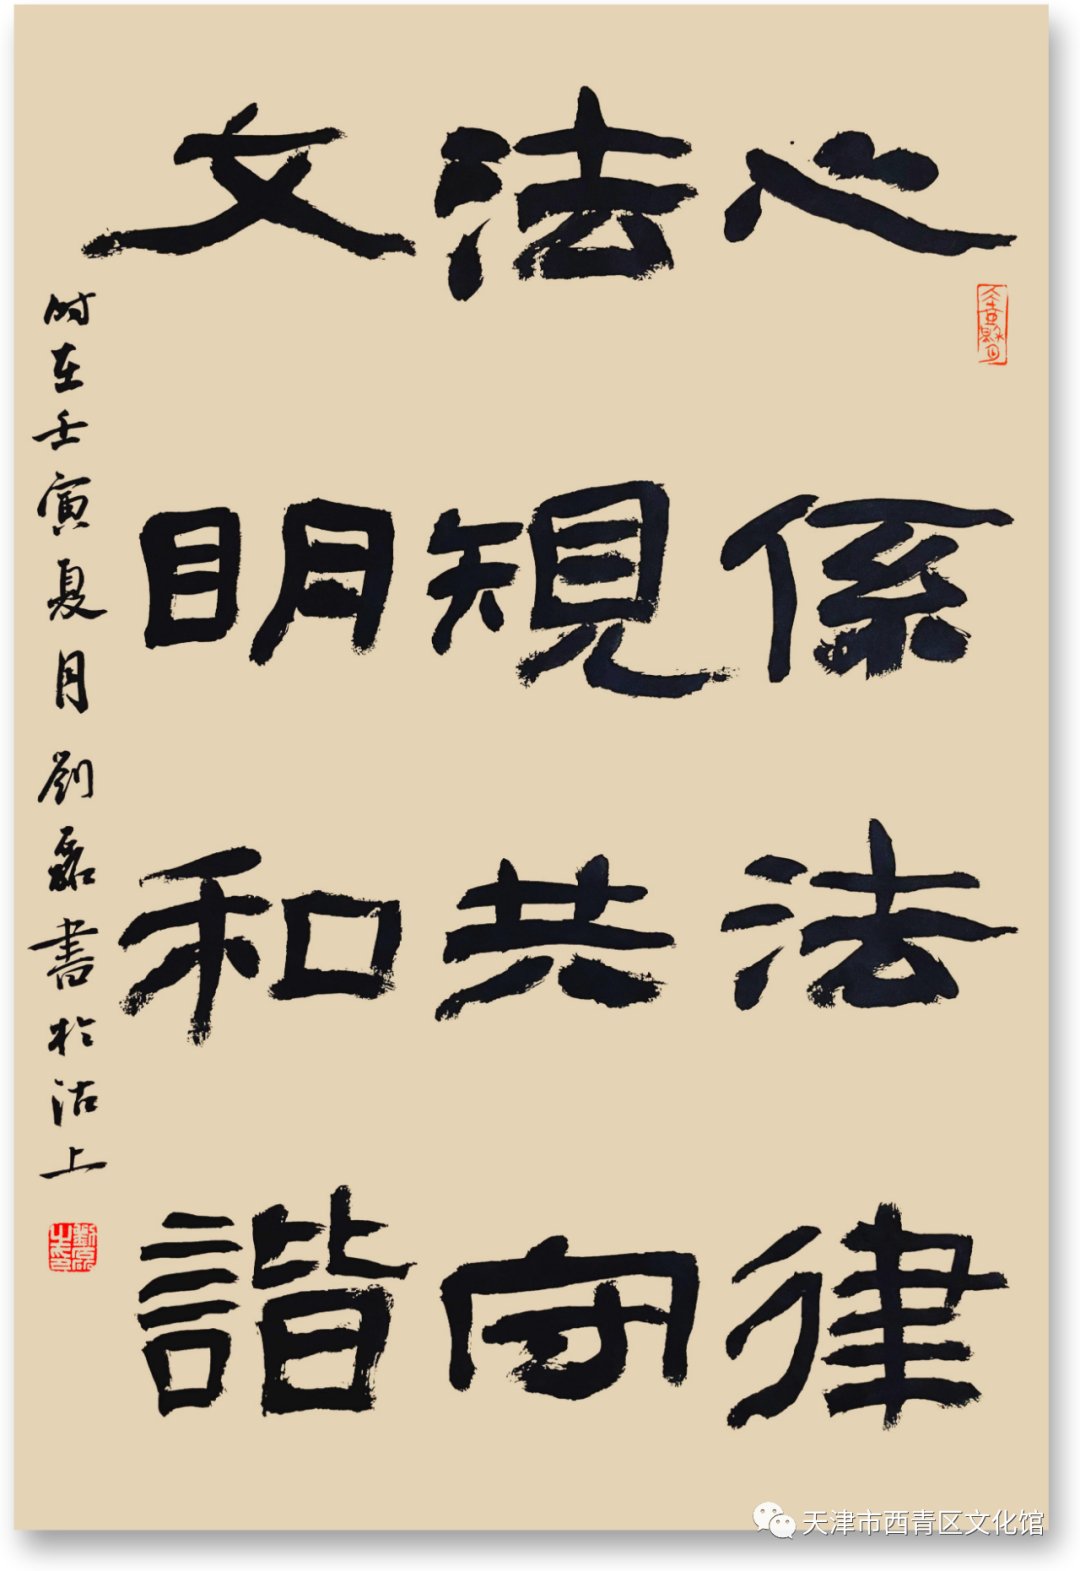 心係法律
法規共守
文明和諧
時在壬寅夏月劉磊書於沽上
天津市西青区文化馆